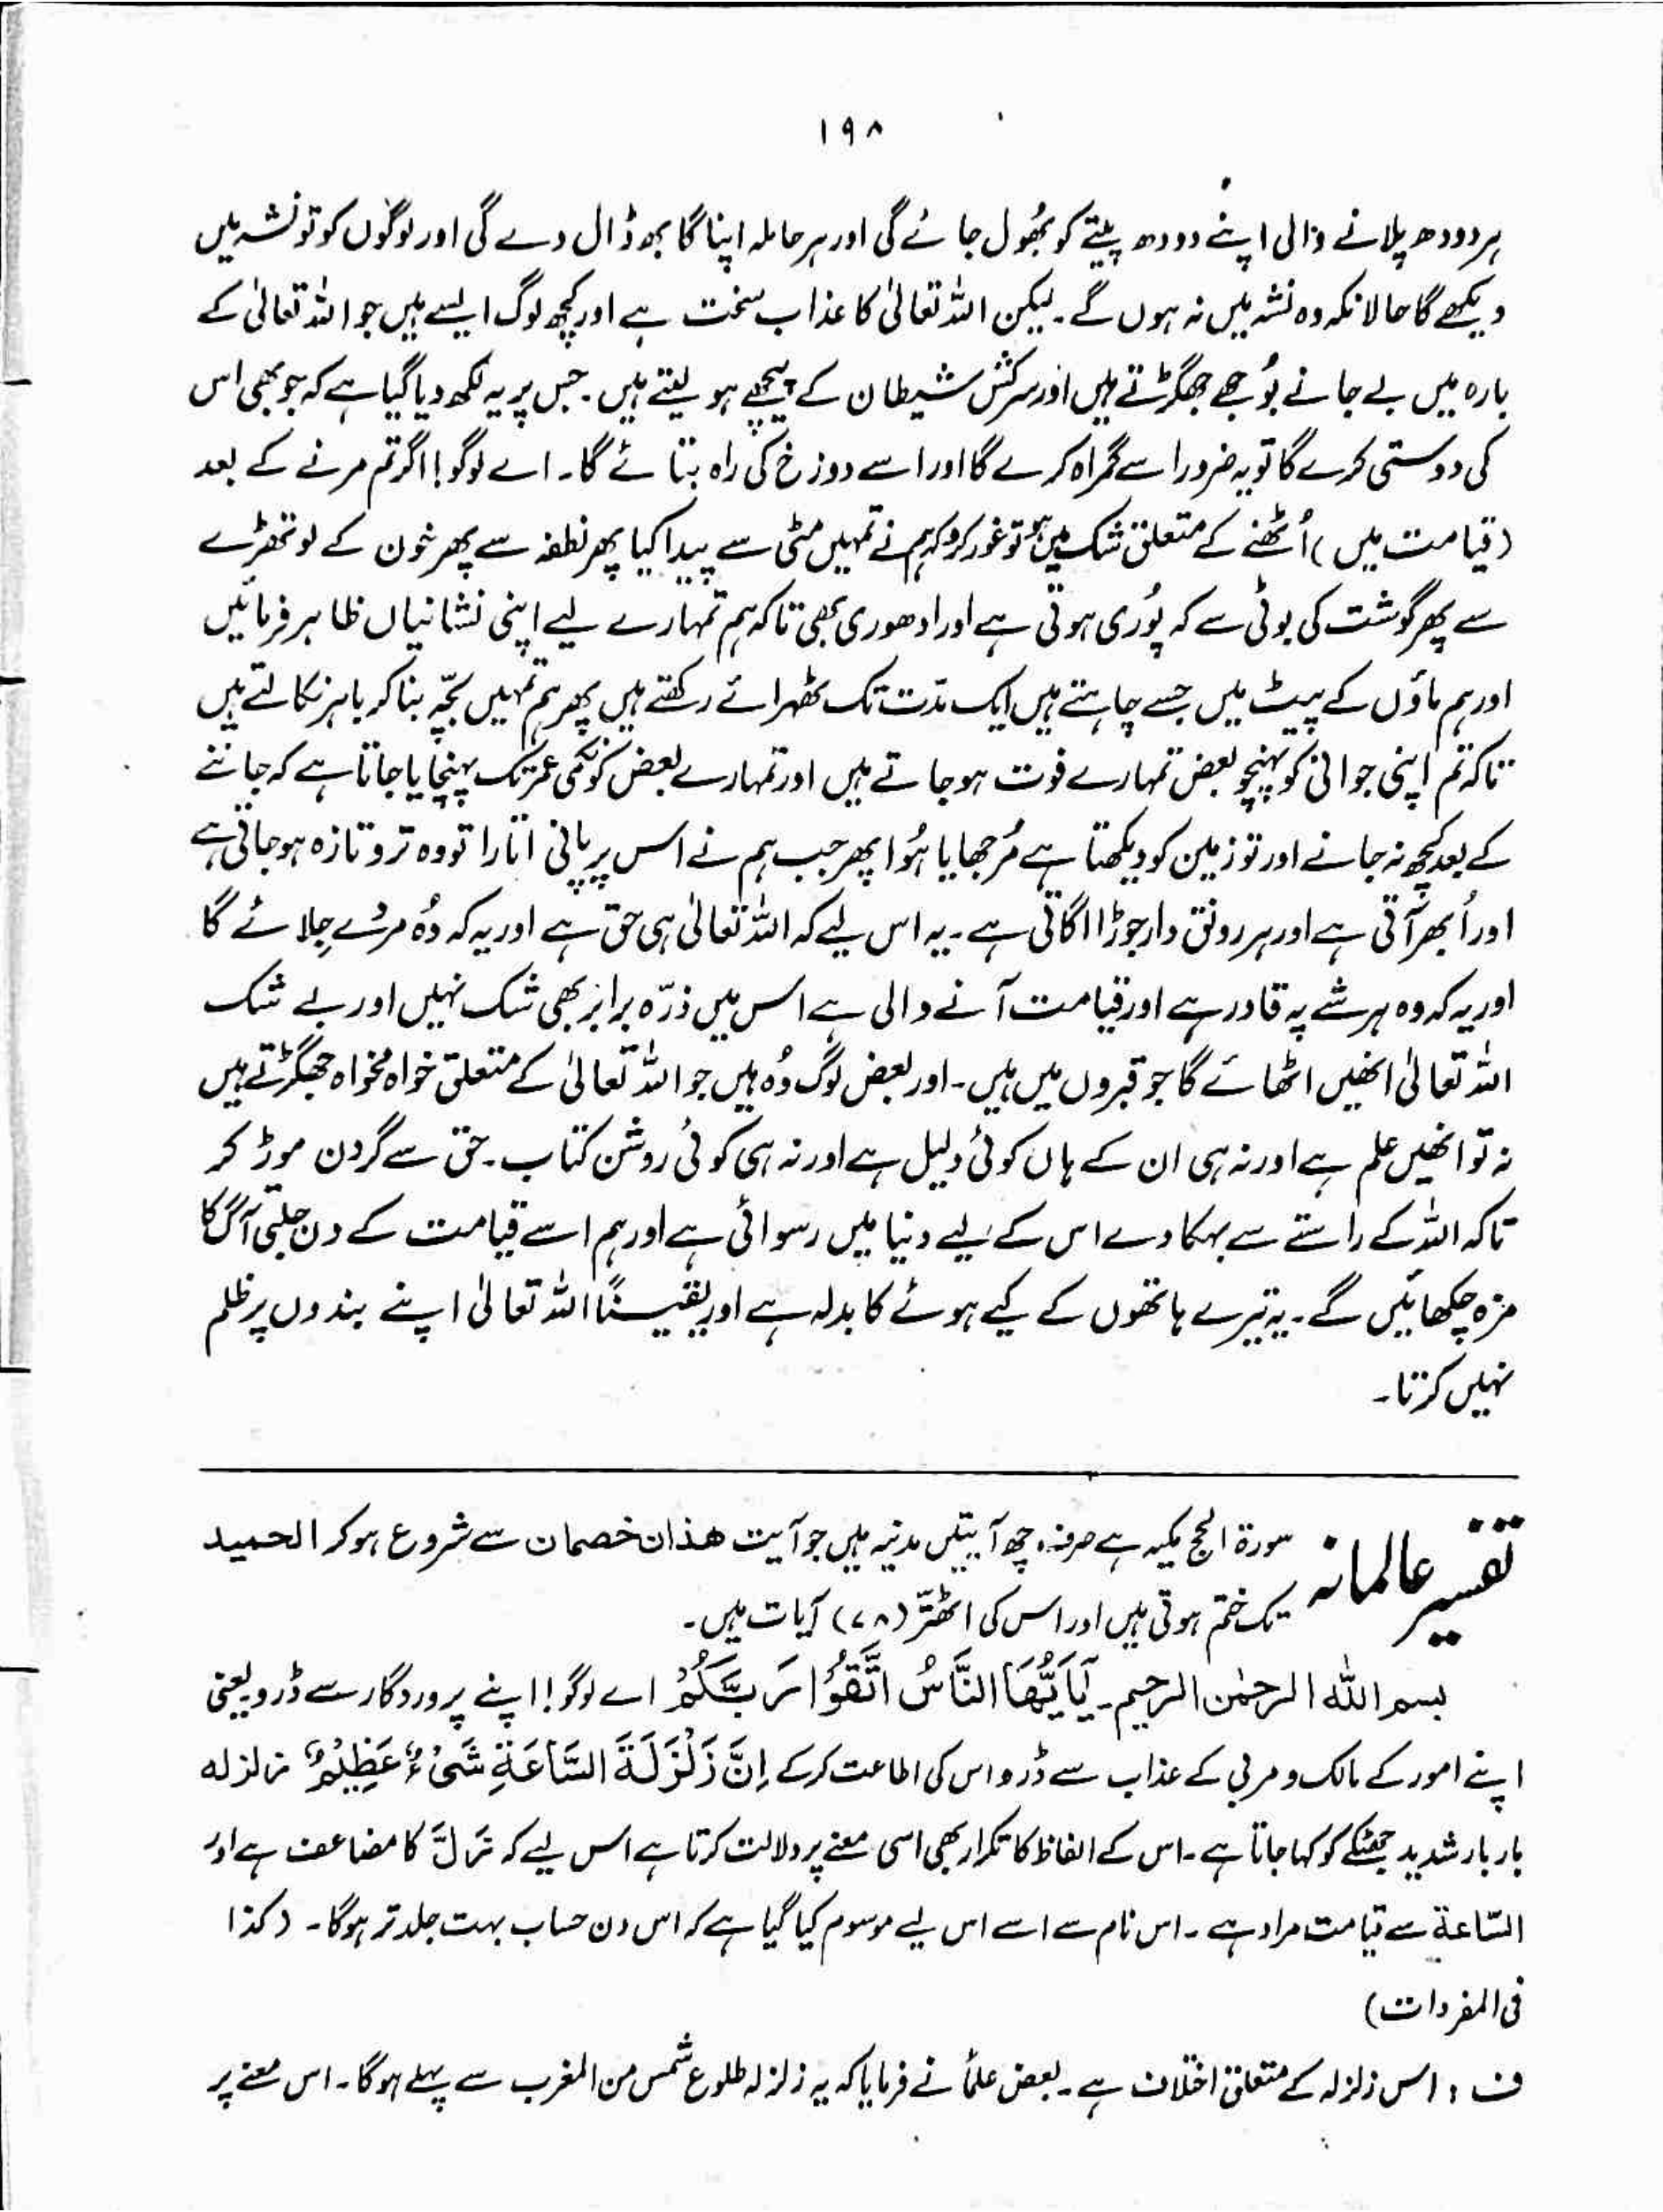 ۱۹۸
ہر دودھ پلانے والی اپنے دودھ پیتے کو بھُول جائے گی اور ہر حاملہ اپنا گابھ ڈال دے گی اور لوگوں کو تو نشہ میں
دیکھے گا حالانکہ وہ نشہ میں نہ ہوں گے۔ لیکن اللہ تعالیٰ کا عذاب سخت ہے اور کچھ لوگ ایسے ہیں جو اللہ تعالیٰ کے
بارہ میں بے جانے بُوجھے جھگڑتے ہیں اور سرکش شیطان کے پیچھے ہو لیتے ہیں۔ جس پر یہ لکھ دیا گیا ہے کہ جو بھی اس
کی دوستی کرے گا تو یہ ضرور اسے گمراہ کرے گا اور اسے دوزخ کی راہ بتائے گا۔ اے لوگو! اگر تم مرنے کے بعد
(قیامت میں) اُٹھنے کے متعلق شک میں ہو تو غور کرو کہ ہم نے تمہیں مٹی سے پیدا کیا پھر نطفہ سے پھر خون کے لوتھڑے
سے پھر گوشت کی بوٹی سے کہ پُوری ہوتی ہے اور ادھوری بھی تاکہ ہم تمہارے لیے اپنی نشانیاں ظاہر فرمائیں
اور ہم ماؤں کے پیٹ میں جسے چاہتے ہیں ایک مدّت تک ٹھہرائے رکھتے ہیں پھر ہم تمہیں بچّہ بنا کر باہر نکالتے ہیں
تاکہ تم اپنی جوانی کو پہنچو بعض تمہارے فوت ہو جاتے ہیں اور تمہارے بعض کو نکمی عمر تک پہنچایا جاتا ہے کہ جاننے
کے بعد کچھ نہ جانے اور تو زمین کو دیکھتا ہے مُرجھایا ہُوا پھر جب ہم نے اس پر پانی اتارا تو وہ تر و تازہ ہو جاتی ہے
اور اُبھر آتی ہے اور ہر رونق دار جوڑا اگاتی ہے۔ یہ اس لیے کہ اللہ تعالیٰ ہی حق ہے اور یہ کہ وُہ مردے جِلائے گا
اور یہ کہ وہ ہر شے پہ قادر ہے اور قیامت آنے والی ہے اس میں ذرّہ برابر بھی شک نہیں اور بے شک
اللہ تعالیٰ انھیں اٹھائے گا جو قبروں میں ہیں۔ اور بعض لوگ وُہ ہیں جو اللہ تعالیٰ کے متعلق خواہ مخواہ جھگڑتے ہیں
نہ تو انھیں علم ہے اور نہ ہی ان کے ہاں کوئی دلیل ہے اور نہ ہی کوئی روشن کتاب۔ حق سے گردن موڑ کر
تاکہ اللہ کے راستے سے بہکا دے اس کے لیے دنیا میں رسوائی ہے اور ہم اسے قیامت کے دن جلتی آگ کا
مزہ چکھائیں گے۔ یہ تیرے ہاتھوں کے کیے ہوئے کا بدلہ ہے اور یقیناً اللہ تعالیٰ اپنے بندوں پر ظلم
نہیں کرتا۔
تفسیر عالمانہ سورۃ الحج مکیہ ہے صرف چھ آیتیں مدنیہ ہیں جو آیت ھذان خصمان سے شروع ہو کر الحمید
تک ختم ہوتی ہیں اور اس کی اٹھترّ (۷۸) آیات ہیں۔
بسم اللہ الرحمٰن الرحیم۔ یٰٓاَیُّھَا النَّاسُ اتَّقُوْا رَبَّکُمْ اے لوگو! اپنے پروردگار سے ڈرو یعنی
اپنے امور کے مالک و مربی کے عذاب سے ڈرو اس کی اطاعت کر کے اِنَّ زَلْزَلَۃَ السَّاعَۃِ شَیْءٌ عَظِیْمٌ زلزلہ
بار بار شدید جھٹکے کو کہا جاتا ہے۔ اس کے الفاظ کا تکرار بھی اسی معنے پر دلالت کرتا ہے اس لیے کہ زَلَّ کا مضاعف ہے اور
السّاعۃ سے قیامت مراد ہے۔ اس نام سے اسے اس لیے موسوم کیا گیا ہے کہ اس دن حساب بہت جلد تر ہوگا۔ (کذا
فی المفردات)
ف : اس زلزلہ کے متعلق اختلاف ہے۔ بعض علماُ نے فرمایا کہ یہ زلزلہ طلوع شمس من المغرب سے پہلے ہوگا۔ اس معنے پر